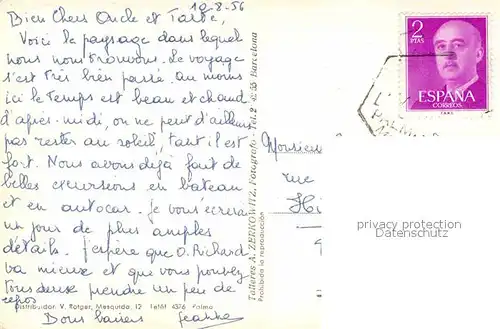 10-8-56
Bien Chers Oncle et Tante,
Voici le paysage dans lequel
nous nous trouvons. Le voyage
s'est très bien passé. au moins
ici le temps est beau et chaud
d'après-midi, on ne peut d'ailleurs
pas rester au soleil, tant il est
fort. Nous avons déjà fait de
belles excursions en bateau
et en autocar. Je vous écrirai
un jour de plus amples
détails. J'espère que O. Richard
va mieux et que vous pouvez
tous deux prendre un peu de
repos
Bons baisers Jeanne
Distribuidor: V. Rotger, Mesquida, 12 Teléf. 4376 Palma
Talleres A. ZERKOWITZ, Fotógrafo Barcelona
Prohibida la reproducción
2
PTAS
ESPAÑA
CORREOS
PALMA
Monsieur
rue
privacy protection
Datenschutz